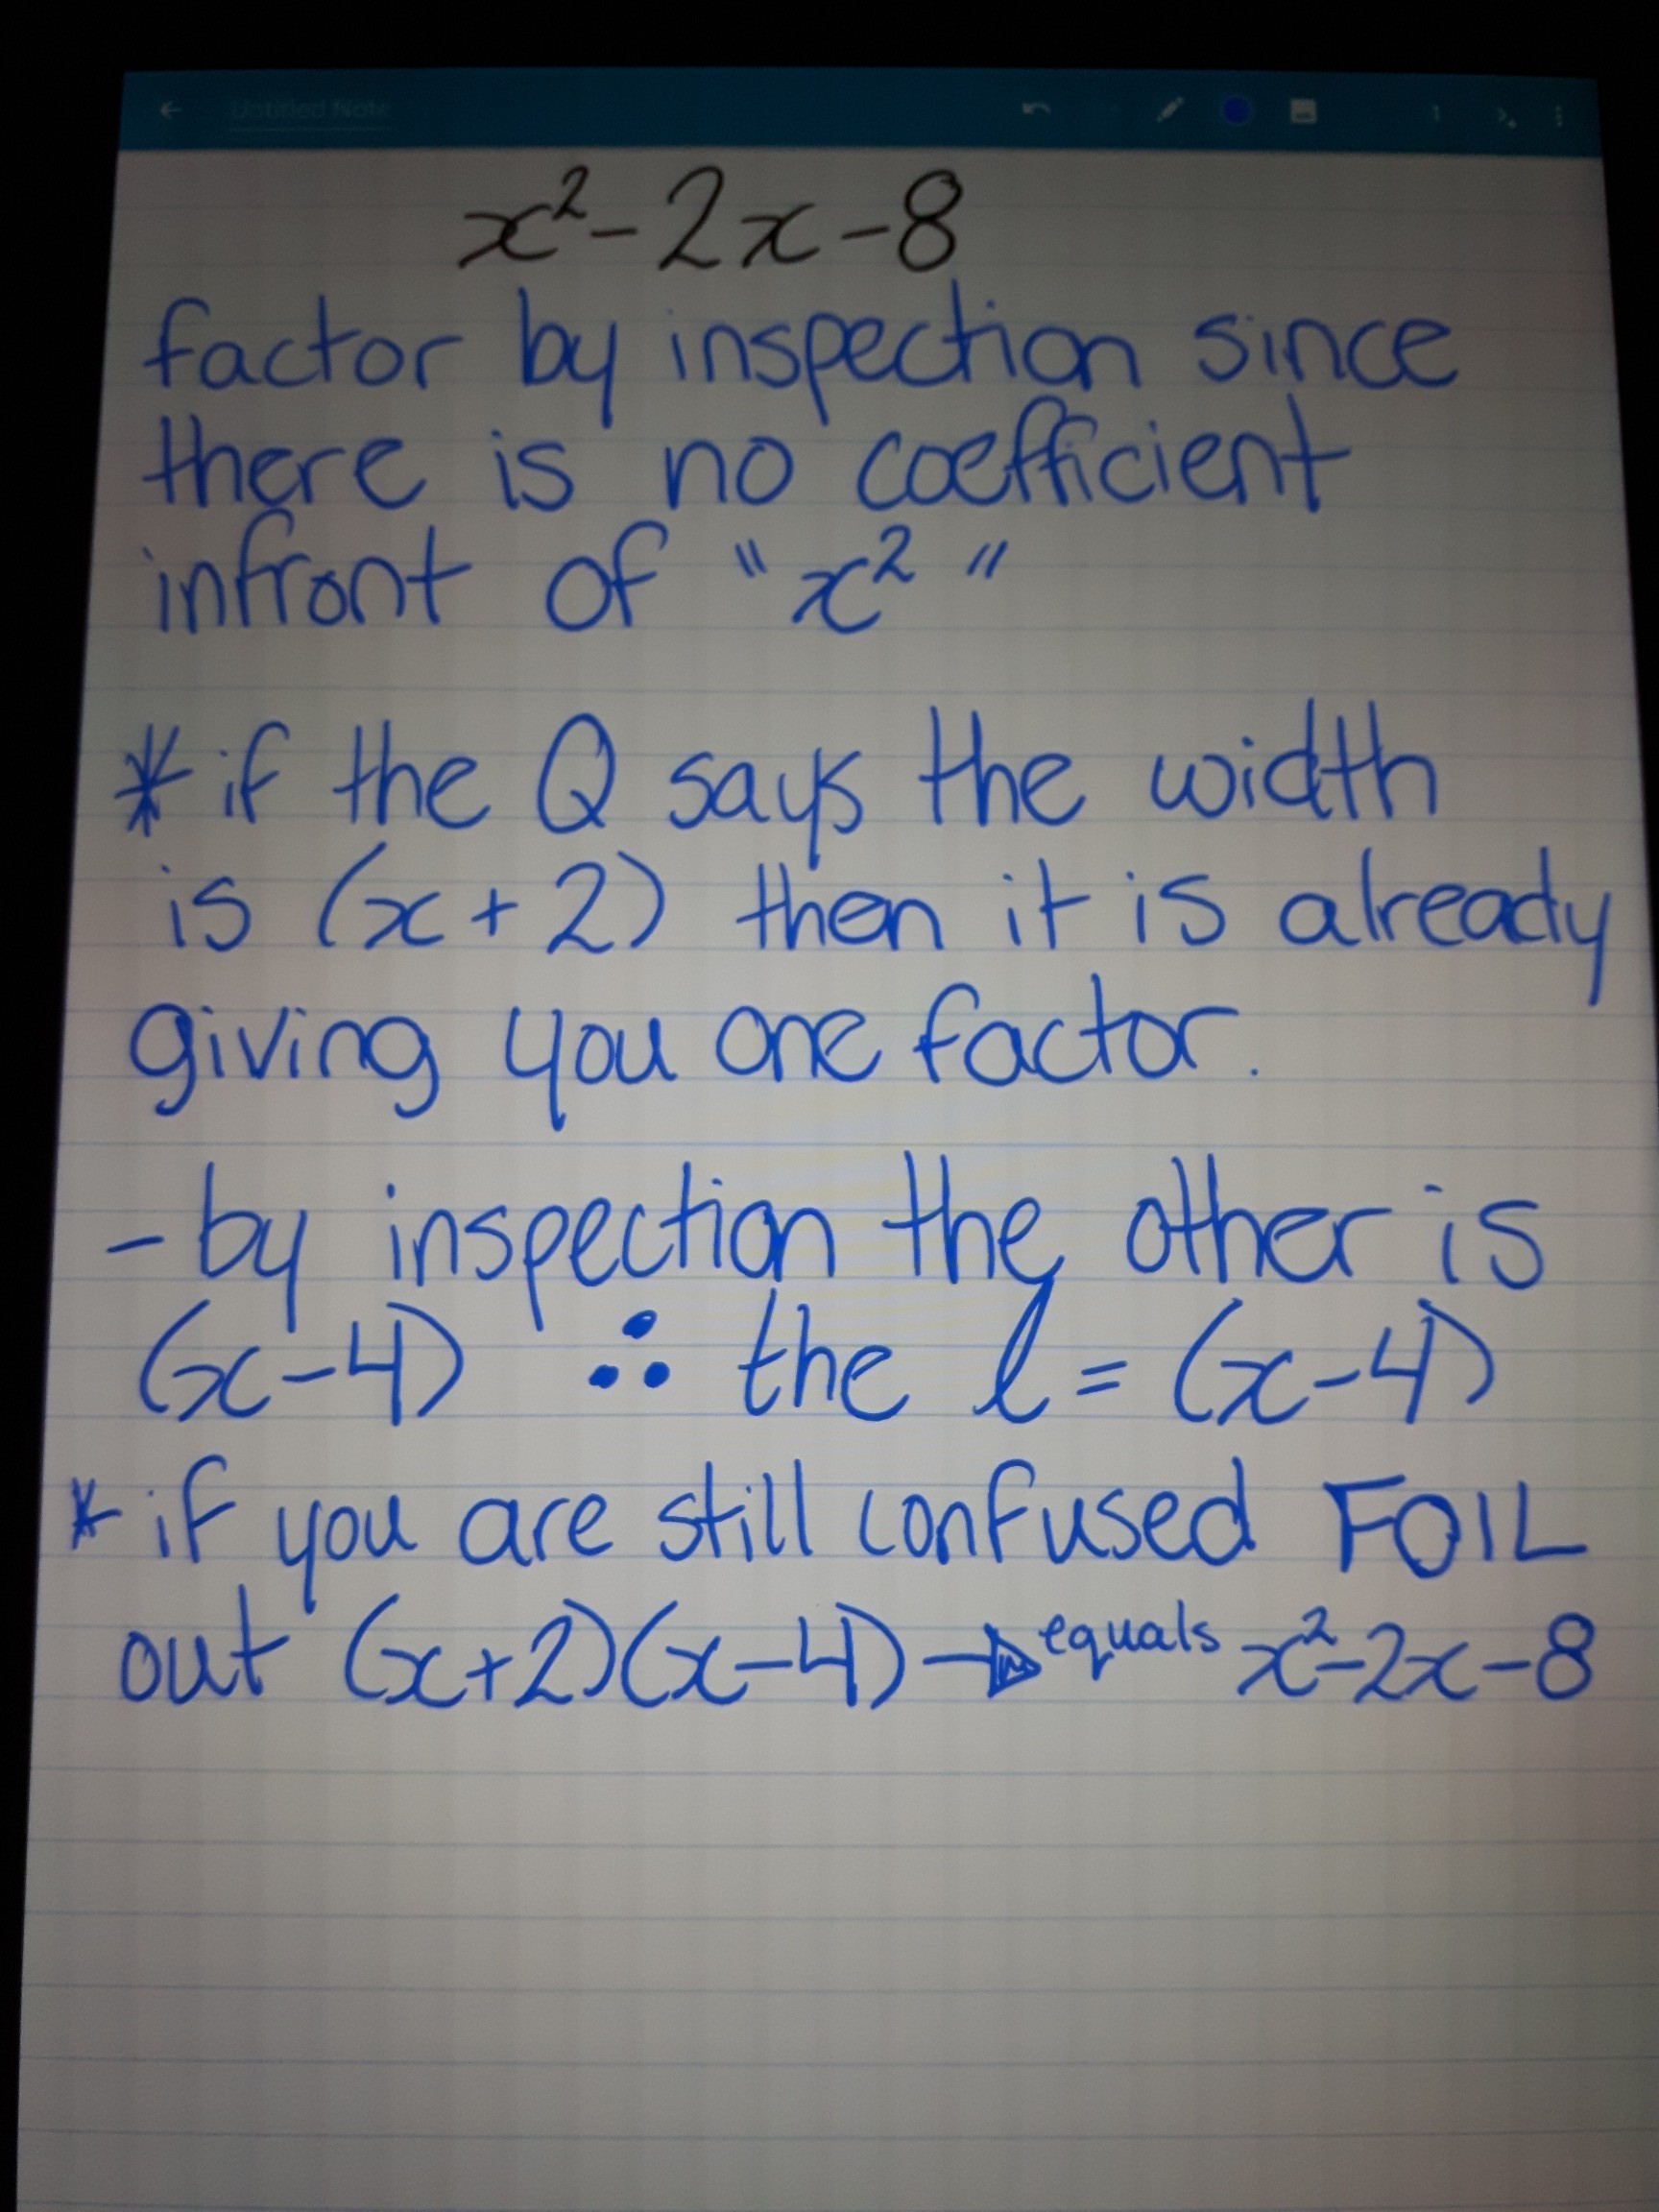 Untitled Note
x² - 2x - 8
factor by inspection since
there is no coefficient
infront of "x²"
* if the Q says the width
is (x + 2) then it is already
giving you one factor.
- by inspection the other is
(x - 4) ∴ the l = (x - 4)
* if you are still confused FOIL
out (x+2)(x-4) → equals x²-2x-8